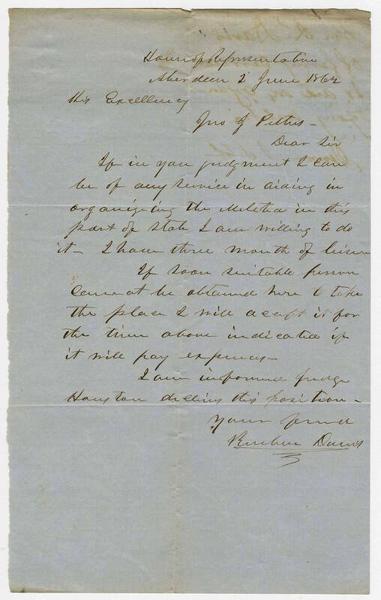 House of Representatives
Aberdeen 2 June 1862
His Excellency
Jno J Pettus -
Dear Sir
If in your judgment I can
be of any service in aiding in
organizing the Melitia in this
part of State I am willing to do
it - I have three month of leisure
If soon suitable person
cannot be obtained here to take
the place I will accept it for
the time above indicated if
it will pay expenses -
I am informed Judge
Houston declines this position -
Your friend
Reuben Davis